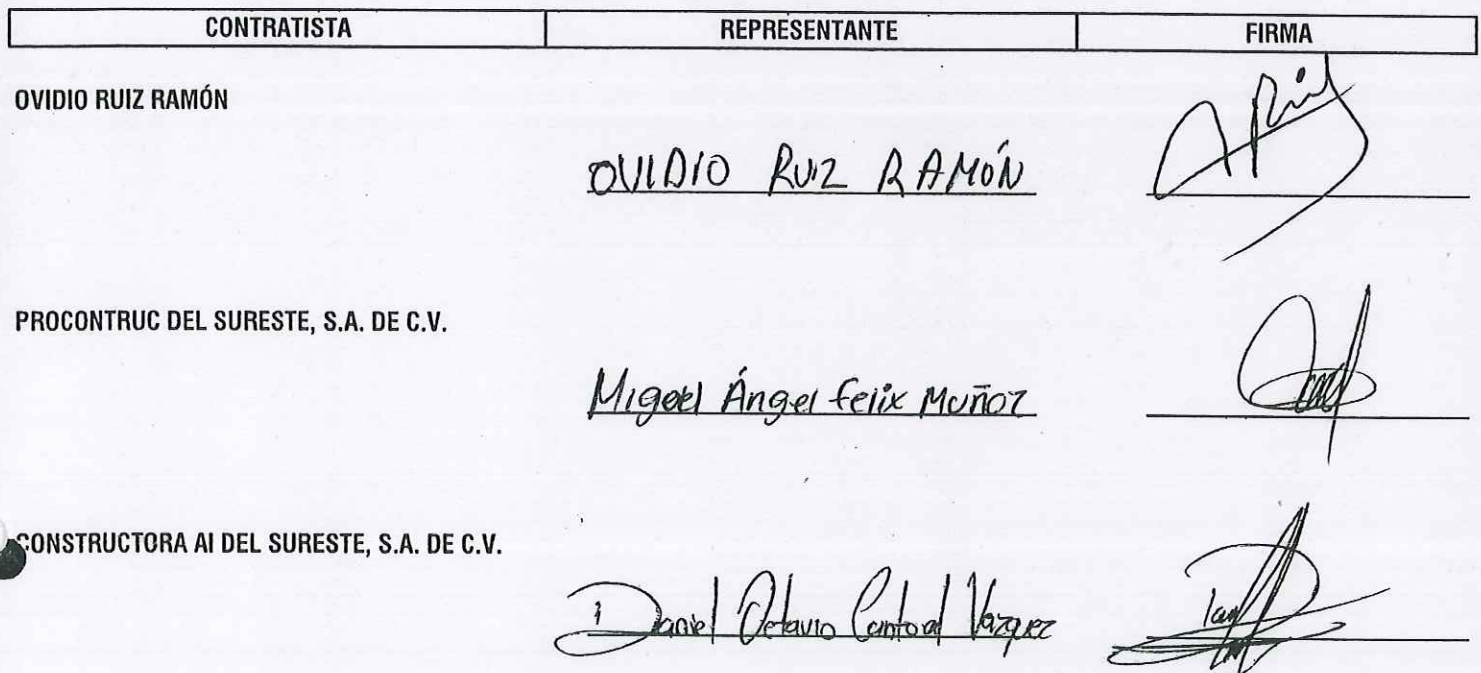 CONTRATISTA REPRESENTANTE FIRMA
OVIDIO RUIZ RAMÓN
OVIDIO RUIZ RAMÓN
PROCONTRUC DEL SURESTE, S.A. DE C.V.
Miguel Ángel Felix Muñoz
CONSTRUCTORA AI DEL SURESTE, S.A. DE C.V.
Daniel Octavio Cantoral Vázquez